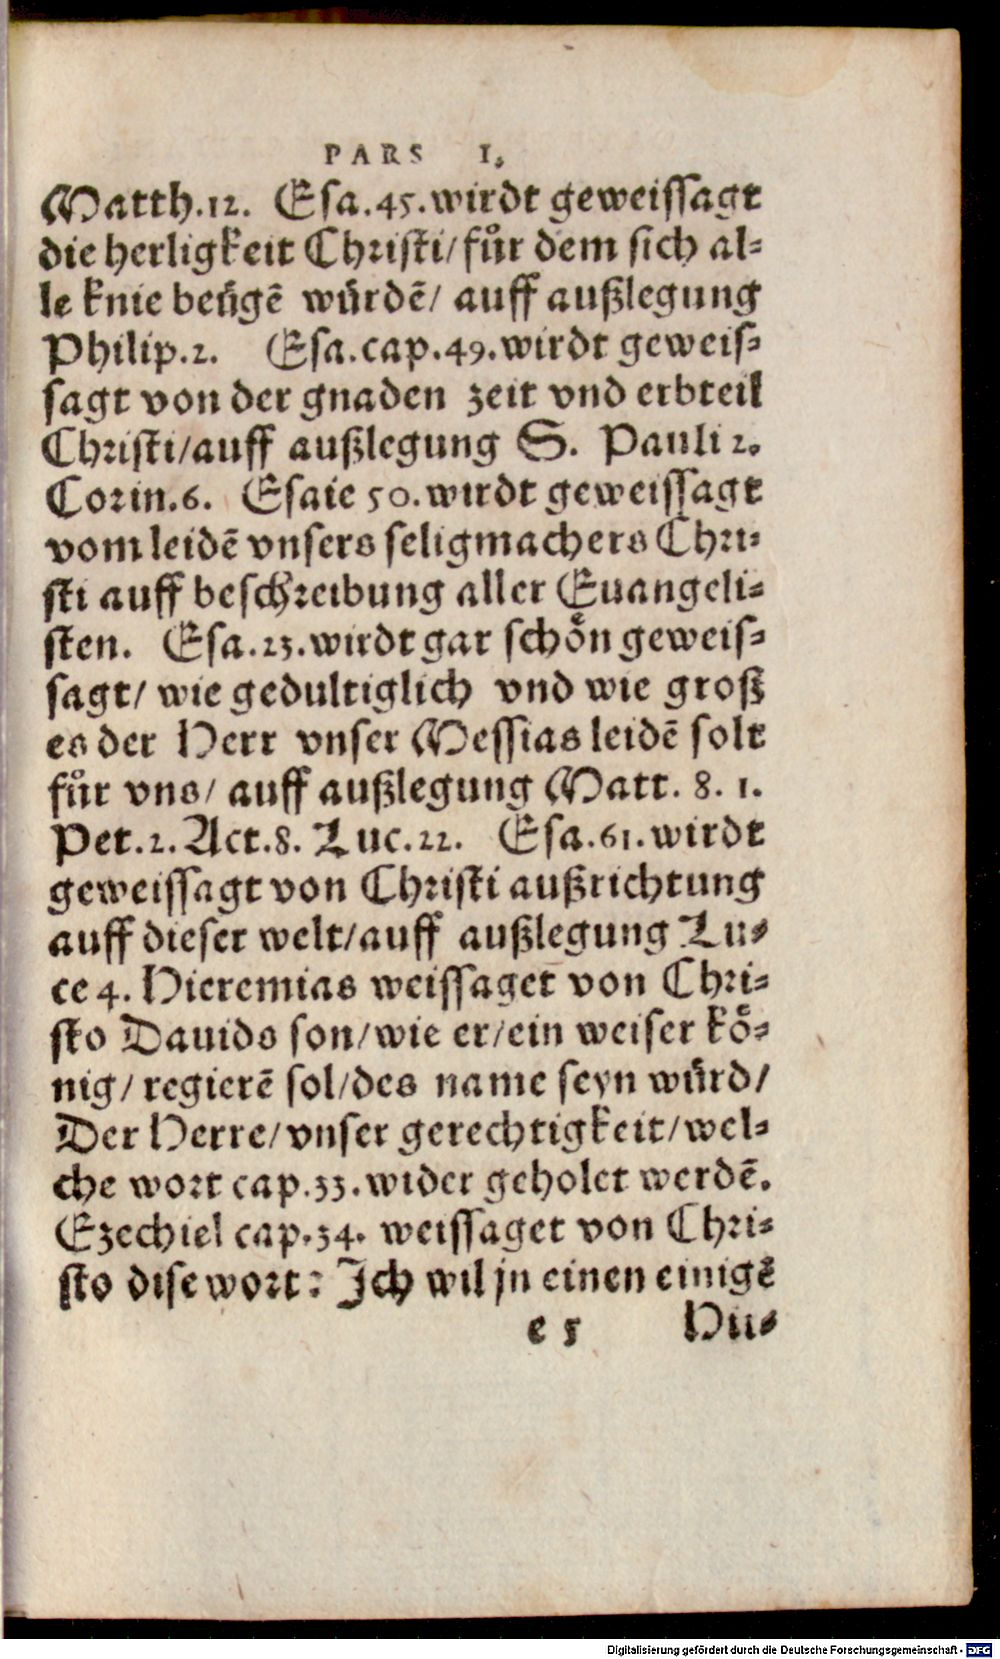 PARS I.
Matth.12. Esa.45.wirdt geweissagt
die herligkeit Christi/fuͤr dem sich al-
le knie beügē würdē/ auff außlegung
Philip.2. Esa.cap.49.wirdt geweis-
sagt von der gnaden zeit vnd erbteil
Christi/auff außlegung S. Pauli 2.
Corin.6. Esaie 50.wirdt geweissagt
vom leidē vnsers seligmachers Chri-
sti auff beschreibung aller Euangeli-
sten. Esa.23.wirdt gar schoͤn geweis-
sagt/ wie gedultiglich vnd wie groß
es der Herr vnser Messias leidē solt
fuͤr vns/ auff außlegung Matt. 8. 1.
Pet.2. Act.8. Luc.22. Esa.61.wirdt
geweissagt von Christi außrichtung
auff dieser welt/auff außlegung Lu-
ce 4. Hieremias weissaget von Chri-
sto Dauids son/wie er/ein weiser koͤ-
nig/ regierē sol/des name seyn würd/
Der Herre/vnser gerechtigkeit/wel-
che wort cap.33.wider geholet werdē.
Ezechiel cap.34. weissaget von Chri-
sto dise wort: Ich wil jn einen einigē
e 5 Hii-
Digitalisierung gefördert durch die Deutsche Forschungsgemeinschaft - DFG